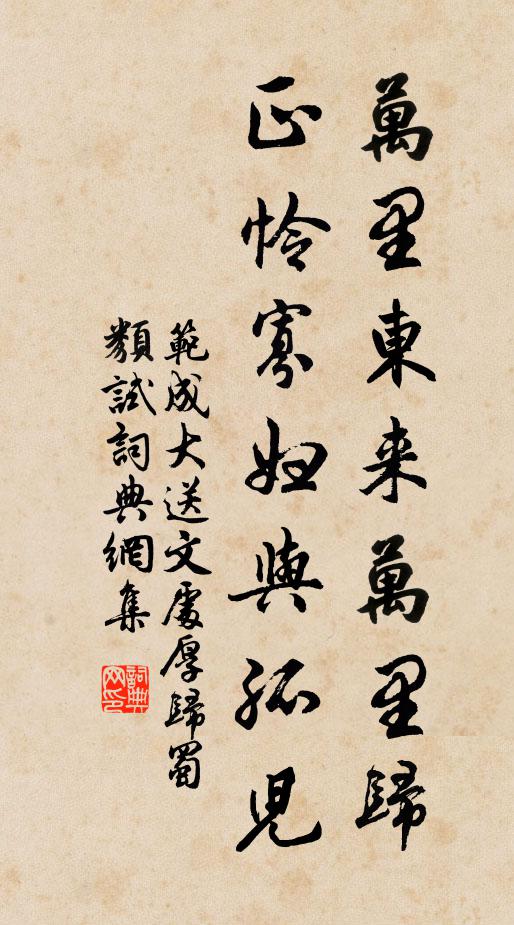 萬里東来萬里歸
正怜寡婦與孤兒
範成大送文處厚歸蜀
類試詞典網集
詞典网印